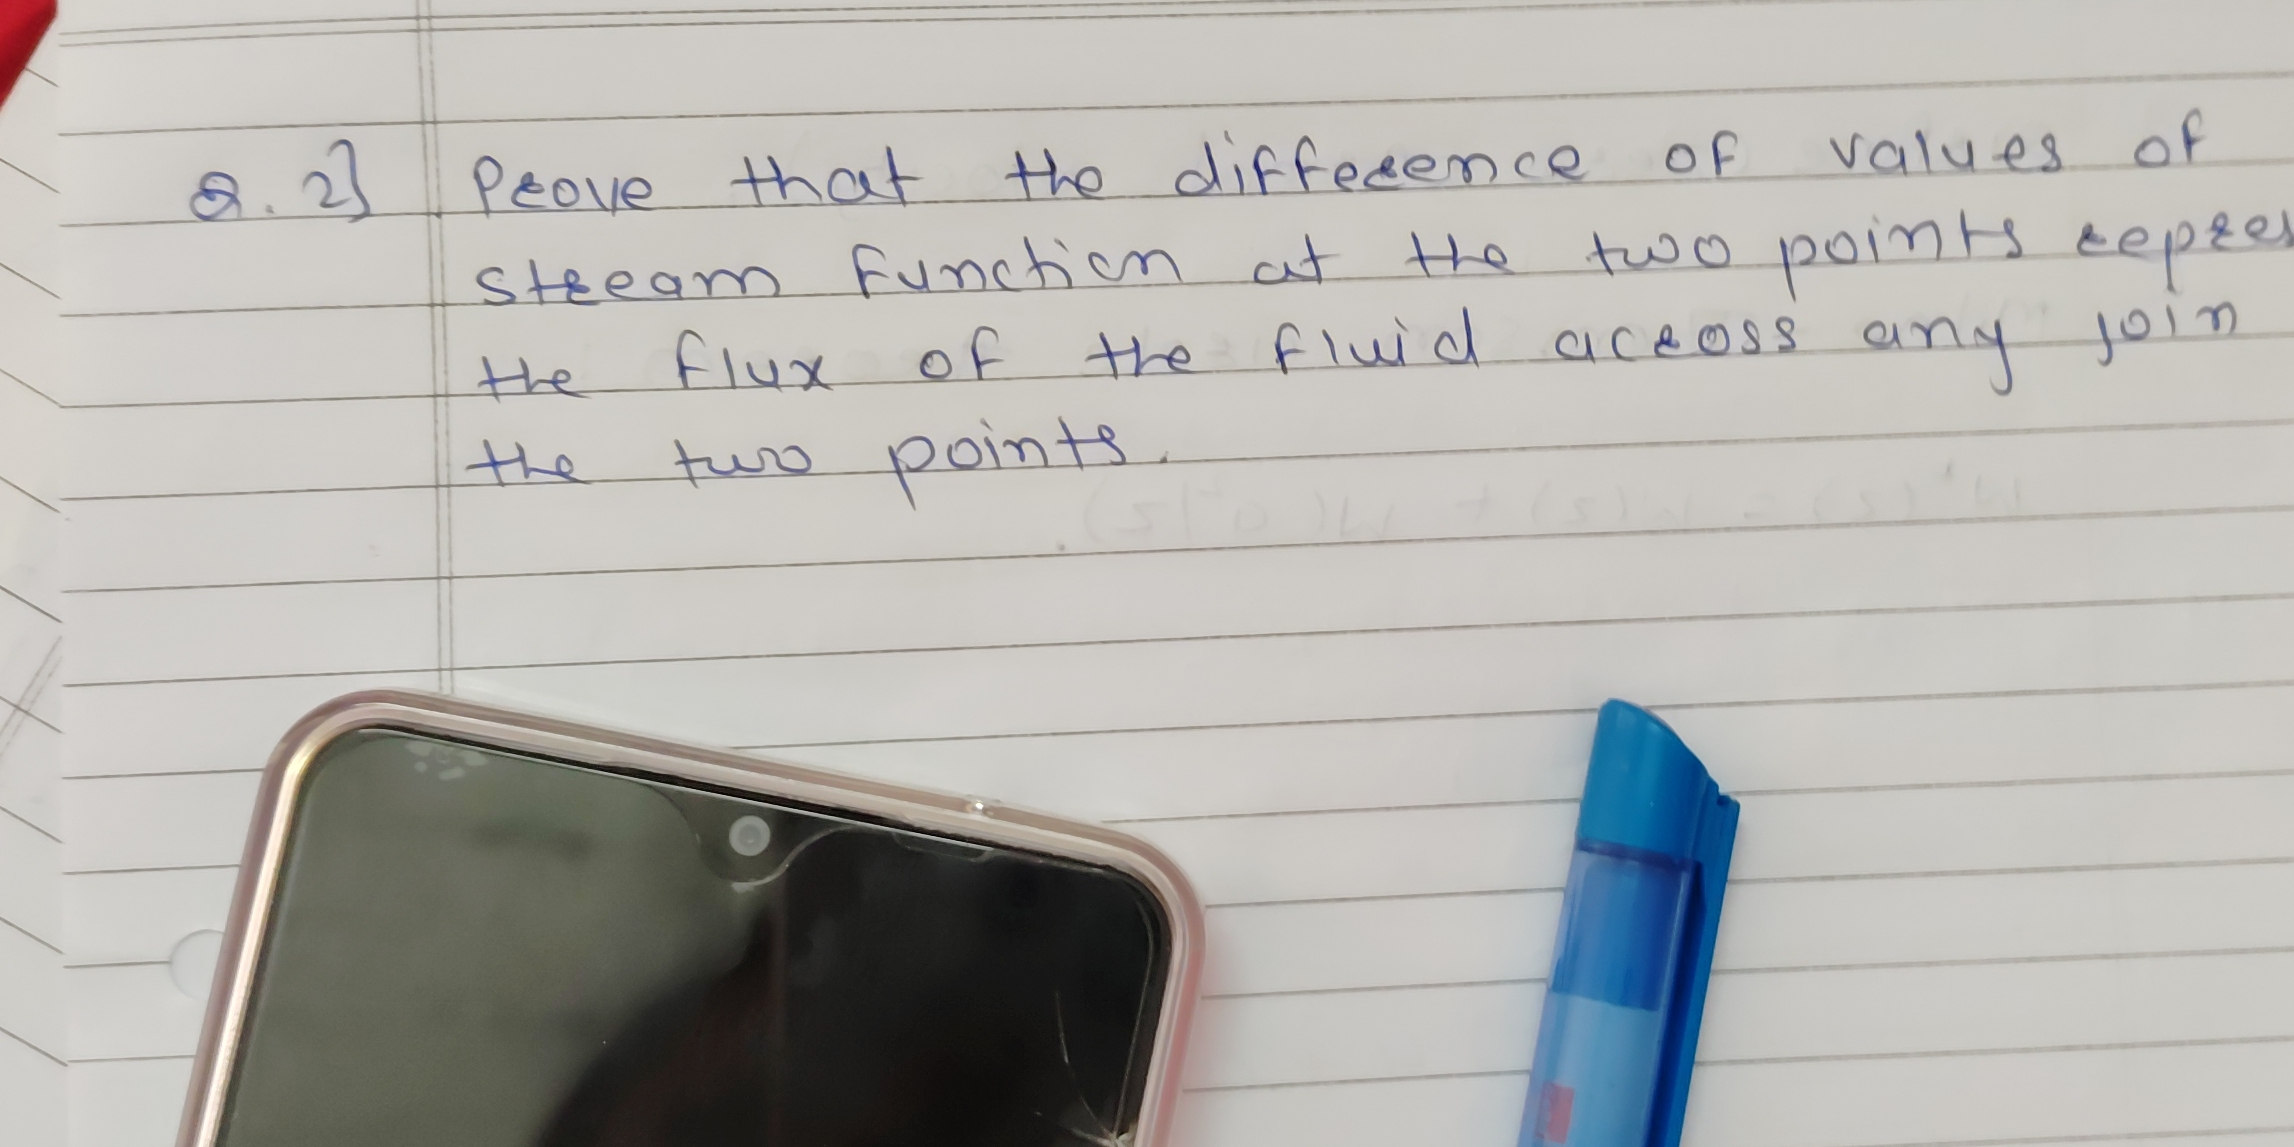 Q. 2] Prove that the difference of values of
stream function at the two points repres
the flux of the fluid across any join
the two points.